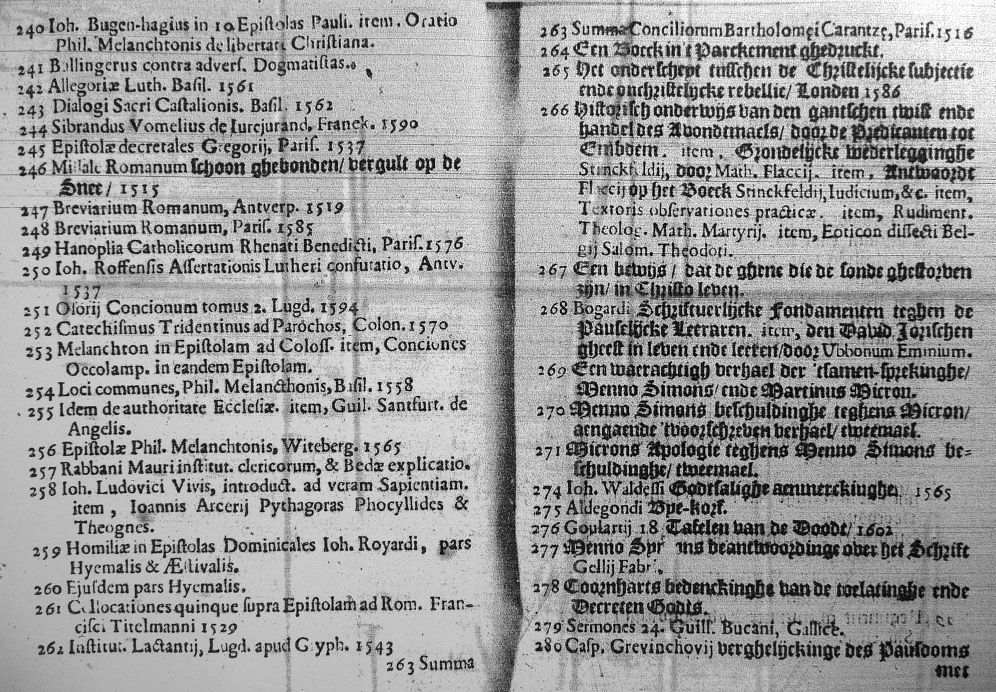 240 Ioh. Bugen-hagius in 10 Epiſtolas Pauli. item. Oratio
Phil. Melanchtonis de libertati Chriſtiana.
241 Bullingerus contra adverſ. Dogmatiſtas.
242 Allegoriæ Luth. Baſil. 1561
243 Dialogi Sacri Caſtalionis. Baſil. 1562
244 Sibrandus Vomelius de Iurejurand. Franek. 1590
245 Epiſtolæ decretales Gregorij, Pariſ. 1537
246 Miſſale Romanum ſchoon ghebonden/ vergult op de
Snee/ 1515
247 Breviarium Romanum, Antverp. 1519
248 Breviarium Romanum, Pariſ. 1585
249 Hanoplia Catholicorum Rhenati Benedicti, Pariſ. 1576
250 Ioh. Roffenſis Aſſertationis Lutheri confutatio, Antv.
1537
251 Olorij Concionum tomus 2. Lugd. 1594
252 Catechiſmus Tridentinus ad Parochos, Colon. 1570
253 Melanchton in Epiſtolam ad Coloſſ. item, Conciones
Oecolamp. in eandem Epiſtolam.
254 Loci communes, Phil. Melancthonis, Baſil. 1558
255 Idem de authoritate Eccleſiæ. item, Guil. Santfurt. de
Angelis.
256 Epiſtolæ Phil. Melanchtonis, Witeberg. 1565
257 Rabbani Mauri inſtitut. clericorum, & Bedæ explicatio.
258 Ioh. Ludovici Vivis, introduct. ad veram Sapientiam.
item, Ioannis Arcerij Pythagoras Phocyllides &
Theognes.
259 Homiliæ in Epiſtolas Dominicales Ioh. Royardi, pars
Hyemalis & Æſtivalis.
260 Ejuſdem pars Hyemalis.
261 Collocationes quinque ſupra Epiſtolam ad Rom. Fran-
ciſci Titelmanni 1529
262 Inſtitut. Lactantij, Lugd. apud Gryph. 1543
263 Summa
263 Summa Conciliorum Bartholomęi Carantzę, Pariſ. 1516
264 Een Boeck in't Parckement ghedruckt.
265 Het onderſcheyt tuſſchen de Chriſtelijcke ſubjectie
ende onchriſtelijcke rebellie/ Londen 1586
266 Hiſtoriſch onderwijs van den gantſchen twiſt ende
handel des Avondtmaels/ door de Predicanten tot
Embden. item. Grondelijcke wederlegginghe
Stinckfeldij, door Math. Flaccij. item, Antwoordt
Flaccij op het Boeck Stinckfeldij, Iudicium, &c. item,
Textoris obſervationes practicæ. item, Rudiment.
Theolog. Math. Martyrij. item, Eoticon diſſecti Bel-
gij Salom. Theodoti.
267 Een bewijs/ dat de ghene die de ſonde gheſtorven
zijn/ in Chriſto leven.
268 Bogardi Schriftuerlijcke Fondamenten teghen de
Pauſelijcke Leeraren. item, den David Joriſchen
gheeſt in leven ende leeren/ door Ubbonum Emmium.
269 Een waerachtigh verhael der 'tſamen-ſprekinghe/
Menno Simons/ ende Martinus Micron.
270 Menno Simons beſchuldinghe teghens Micron/
aengaende 'tvoorſchreven verhael/ tweemael.
271 Microns Apologie teghens Menno Simons be-
ſchuldinghe/ tweemael.
274 Ioh. Waldeſſi Godtſalighe aenmerckinghe, 1565
275 Aldegondi Bye-korf.
276 Goulartij 18 Tafelen van de Doodt/ 1602
277 Menno Sy ns beantwoordinge over het Schrift
Gellij Fabri.
278 Coornharts bedenckinghe van de toelatinghe ende
Decreten Godts.
279 Sermones 24. Guill. Bucani, Gallicè.
280 Caſp. Grevinchovij verghelijckinge des Pauſdoms
met